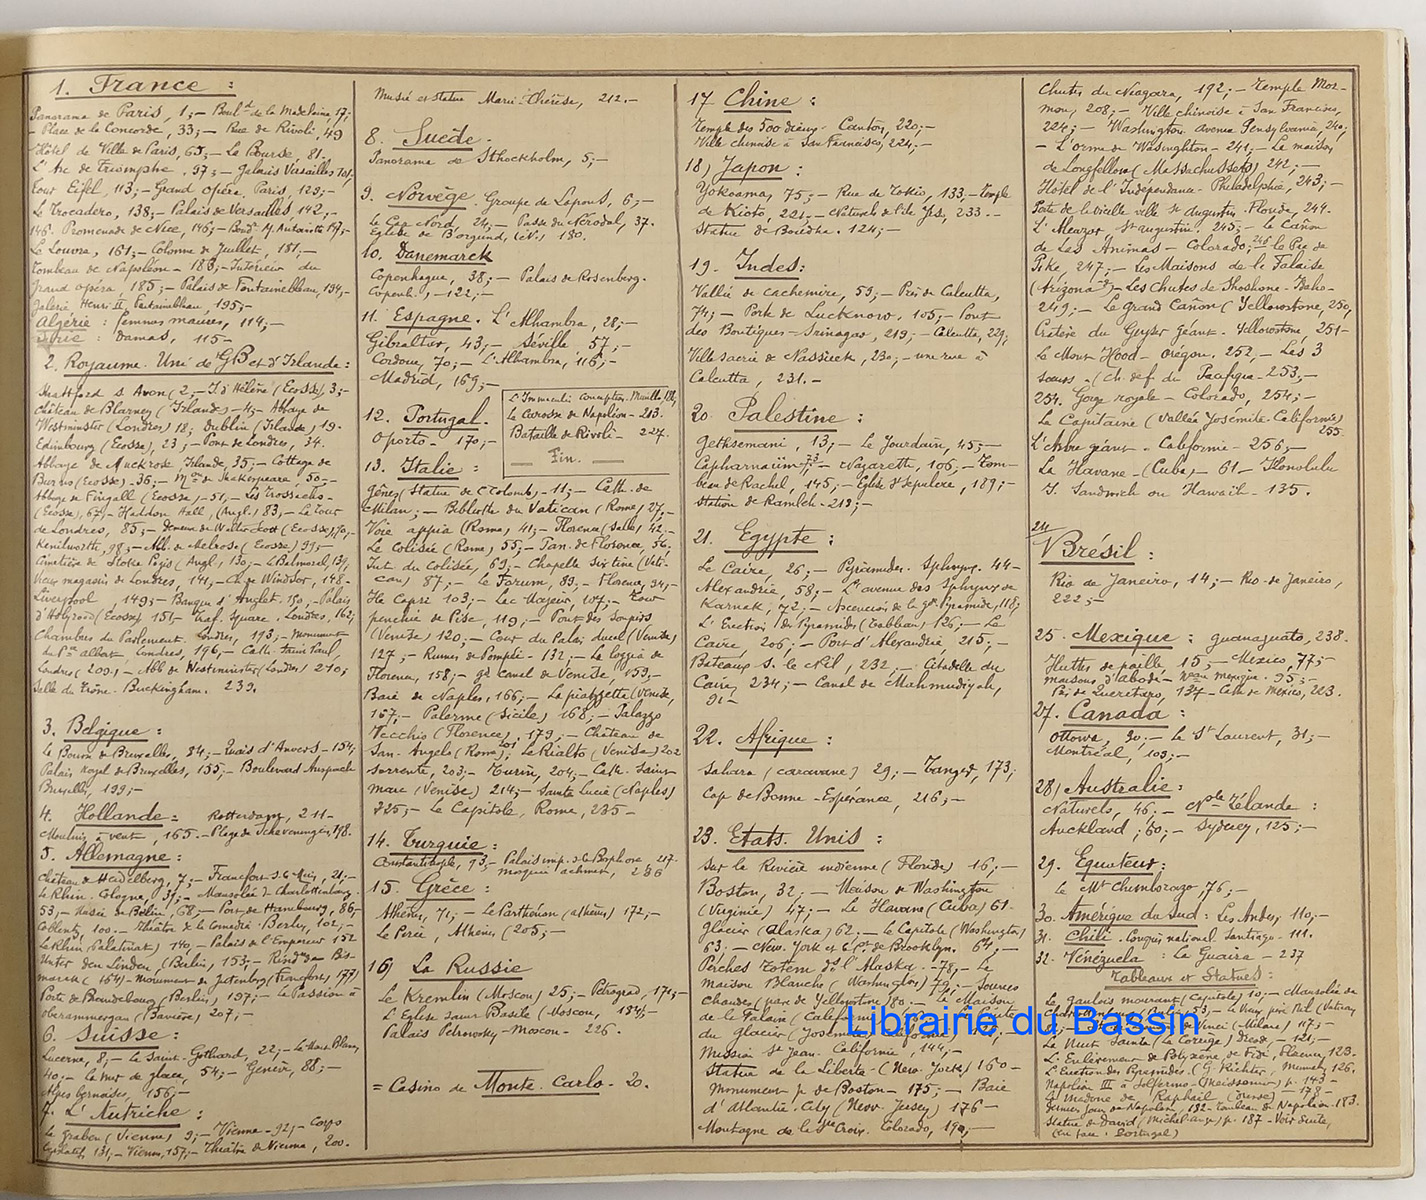 1. France :
Panorama de Paris, 1;— Boul.d de la Madeleine, 17;
— Place de la Concorde, 33;— Rue de Rivoli, 49
Hôtel de Ville de Paris, 65;— La Bourse, 81.
L'Arc de Triomphe, 97;— Palais Versailles 101,
Tour Eifel, 113;— Grand Opéra, Paris, 129;—
Le Trocadero, 138;— Palais de Versailles, 142,—
146. Promenade de Nice, 146;—
Le Louvre, 161;— Colonne de Juillet, 181;—
Tombeau de Napoléon - 183;— Intérieur du
grand opéra, 185;— Palais de Fontainebleau, 194,—
Galerie Henri II, Fontainebleau, 195;—
Algérie : femmes maures, 114;—
: Damas, 115—
2. Royaume Uni de GB et d'Irlande :
Strattford s Avon (2,— Ste Hélène (Ecosse), 3;—
Château de Blarney (Irlande) - 4;— Abbaye de
Westminster (Londres) 18; Dublin (Irlande), 19.
Edinbourg (Ecosse), 23,— Pont de Londres, 34.
Abbaye de Muckrose, Irlande, 35;— Cottage de
Burns (Ecosse) - 36;— Mon de Shakespeare, 50;—
Abbaye de Fingall (Ecosse) - 51,— Les Trossachs -
(Ecosse), 67,— Haddon Hall, (Angl.) 83,— La Tour
de Londres, 85;— Demeure de Walter Scott (Ecosse), 90,—
Kenilworth, 98;— Abb. de Melrose (Ecosse) 99;—
Cimetière de Stoke Pogis (Angl., 130;— Balmoral, 139,
Vieux magasin de Londres, 141,— Ch. de Windsor, 148-
Liverpool 149;— Banque d'Anglet. 150,— Palais
d'Holyrood (Ecosse) 151— Traf. Square. Londres, 162;
Chambres du Parlement. Londres, 193,— Monument
du Pce Albert Londres, 196,— Cath. Saint Paul,
Londres (209;— Abb. de Westminster (Londres) 210;
Salle du Trône. Buckingham. 239.
3. Belgique :
La Bourse de Bruxelles, 84;— Quais d'Anvers - 154;
Palais royal de Bruxelles, 155;— Boulevard Anspach
Bruxelles, 199;—
4. Hollande : Rotterdam, 211—
Moulins à vent, 165.— Plage de Scheveningen, 198.
5. Allemagne :
Château de Heidelberg, 7;— Francfort s. le Mein, 21;—
Le Rhin. Cologne, 37;— Mausolée de Charlottenbourg.
53,— Musée de Berlin, 68,— Port de Hambourg, 86,—
Coblentz, 100.— Théâtre de la Comédie. Berlin, 102,—
Le Rhin (Palatinat) 140,— Palais de l'Empereur 152
Unter den Linden, (Berlin), 153;—
marck (164)— Monument de Gutenberg (Francfort, 177)
Porte de Brandebourg (Berlin), 197;— La Passion à
Oberammergau (Bavière) 207,—
6. Suisse :
Lucerne, 8;— Le Saint. Gothard, 22;— Le Mont Blanc,
40.— La mer de glace, 54;— Genève, 88;—
Alpes bernoises, 156;—
7. L'Autriche :
Le Graben (Vienne) 9;— Vienne - 92;— Corps
législatif, 131;— Vienne, 157;— Théâtre de Vienne, 200.
Musée et Statue Marie-Thérèse, 212.—
8. Suède.
Panorama de Sthockholm, 5;—
9. Norvège. Groupe de Lapons, 6;—
Le Cap Nord, 24;— Passe du Nérodal, 37.
Eglise de Borgund, 180.
10. Danemarck
Copenhague, 38;— Palais de Rosenberg.
Copenh., —122,—
11. Espagne. L'Alhambra, 28;—
Gibraltar, 43,— Séville 57;—
Cordoue, 70;— L'Alhambra, 116;—
Madrid, 169;—
L'Immaculée Conception. Murillo, 182,
Le Carosse de Napoléon - 213.
Bataille de Rivoli - 227.
— Fin. —
12. Portugal.
Oporto - 170;—
13. Italie :
Gênes (Statue de C Colomb) - 11;— Cath. de
Milan;— Biblioth. du Vatican (Rome) 27,—
Voie Appia (Rome) 41;— Florence (Salle) 42.—
Le Colisée (Rome), 55;— Pan. de Florence, 56;
Int. du Colisée, 69;— Chapelle Sixtine (Vati-
can) 87;— Le Forum, 89;— Florence, 94;—
Ile Capri 103;— Lac Majeur, 107;— Tour
penchée de Pise, 119;— Pont des Soupirs
(Venise) 120;— Cour du Palais ducal (Venise)
127,— Ruines de Pompéi - 132;— La loggia de
Florence, 158;— gd Canal de Venise, 159;—
Baie de Naples, 166;— La piazzette (Venise,
167;— Palerme (Sicile) 168;— Palazzo
Vecchio (Florence), 179;— Château de
San. Angelo (Rome) 201; Le Rialto (Venise) 202
Sorrente, 203;— Turin, 204;— Cath. Saint
Marc (Venise) 214;— Santa Lucia (Naples)
225;— Le Capitole, Rome, 235—
14. Turquie :
Constantinople, 93,— Palais imp. s. le Bosphore, 217.
mosquée achmet, 236
15. Grèce :
Athènes, 71;— Le Parthénon (Athènes) 172,—
Le Pirée, Athènes (205;—
16) La Russie
Le Kremlin (Moscou) 25;— Petrograd, 174;—
L'Eglise Saint Basile (Moscou, 184;—
Palais Petrowsky - Moscou - 226.
= Casino de Monte. Carlo - 20.
17 Chine :
Temple des 500 dieux. Canton, 220;—
Ville chinoise à San Francisco, 224;—
18) Japon :
Yokoama, 75;— Rue de Tokio, 133,— Temple
de Kioto, 221.— Naturels de l'île Yes, 233.—
Statue de Bouddha. 124;—
19. Indes :
Vallée de Cachemire, 59;— Près de Calcutta,
74;— Porte de Lucknow. 105,— Pont
des Boutiques - Srinagar, 219;— Calcutta, 229;
Ville sacrée de Nassick, 230;— une rue à
Calcutta, 231.—
20. Palestine :
Gethsemani, 13;— Le Jourdain, 45;—
Capharnaüm, 73— Nazareth, 106,— Tom-
beau de Rachel, 145,— Eglise St Sepulcre, 189;—
Station de Ramleh - 218;—
21. Egypte :
Le Caire, 26;— Pyramides. Sphynx. 44—
Alexandrie, 58;— L'avenue des Sphynx de
Karnak, 72;— Ascension de la gde Pyramide, 118;
L'Erection des Pyramides (Tableau) 126;— Le
Caire, 206;— Port d'Alexandrie, 215,—
Bateaux s. le Nil, 232,— Citadelle du
Caire, 234;— Canal de Mahmudiyah,
91—
22. Afrique :
Sahara (caravane) 29;— Tanger, 173;
Cap de Bonne - Espérance, 216;—
23. Etats. Unis :
Sur la Rivière indienne (Floride) 16;—
Boston, 32;— Maison de Washington
(Virginie) 47;— La Havane (Cuba) 61.
Glacier (Alaska) 62;— Le Capitole (Washington)
63.— New. York et le Pt de Brooklyn. 64,—
Perches Totem de l'Alaska - 78,— La
maison Blanche (Washington) 79;— Sources
chaudes (parc de Yellowstone) 80— La Maison
de la Falaise
du glacier
Mission St Jean. Californie, 144,—
Statue de la Liberté - (New. York) 160—
Monument p. de Boston - 175;— Baie
d'Atlantic. City (New Jersey) 176—
Montagne de la Ste Croix. Colorado, 190,—
Chutes du Niagara, 192,— Temple Mor-
mon, 208;— Ville chinoise à San Francisco,
224,— Washington avenue Pensylvania, 240;
— L'orme de Washington - 241,— La maison
de Longfellow (Massachussets) 242,—
Hôtel de l'Indépendance - Philadelphie, 243;—
Porte de la vieille ville St Augustin. Floride, 244.
L'Alcazar St augustin. 245;— Le Cañon
de Las Animas - Colorado; 246 Le Pic de
Pike, 247,— Les Maisons de la Falaise
(Arizona) Les Chutes de Shoshone - Idaho -
249,— Le grand Cañon (Yellowstone, 250,
Cratère du Geyser géant. Yellowstone, 251—
Le Mont Hood - Orégon. 252,— Les 3
Soeurs - (ch. de f. du Pacifique - 253,—
254. Gorge royale - Colorado, 254;—
La Capitaine (Vallée Yosémite - Californie)
255.
L'Arbre géant - Californie - 256;—
La Havane - (Cuba) - 61 - Honolulu
I. Sandwich ou Hawaïh - 135.
24/
Brésil :
Rio de Janeiro, 14;— Rio de Janeiro,
222;—
25. Mexique : guanajuato, 238.
Huttes de paille, 15;— Mexico, 77;—
maisons d'adobe - Neau mexique. 95;—
Pce de Queretaro, 137— Cath. de Mexico, 223.
27. Canada :
Ottowa, 30.— Le St Laurent, 31;—
Montréal, 109;—
28) Australie :
Naturels, 46.— Nvle Zélande :
Auckland, 60;— Sydney, 125;—
29. Equateur :
Le Mt Chimborazo 76;—
30. Amérique du Sud : Les Andes, 110;—
31. Chili - Congrès national Santiago - 111.
32. Vénézuela : La Guaira - 237
Tableaux et Statues :
Le gaulois mourant (Capitole) 10,— Mausolée de
Charlottenbourg, Berlin, 53,— Le Vieux père Nil (Vatican,
Vinci (Milan) 117;—
La Nuit Sainte (Le Corrège) Dresd, —121,—
L'Enlèvement de Polyxène de Fédi, Florence, 123.
L'Erection des Pyramides. (G. Richter, Munich, 126.
Napoléon III à Solférino - (Meissonier) p. 143—
La Madone de Raphaël (Dresde) — 178—
Dernier jour de Napoléon, 182— Tombeau de Napoléon - 183.
Statue de David (Michel-Ange) p. 187 - Voir Suite,
(en face : Portugal)
Librairie du Bassin